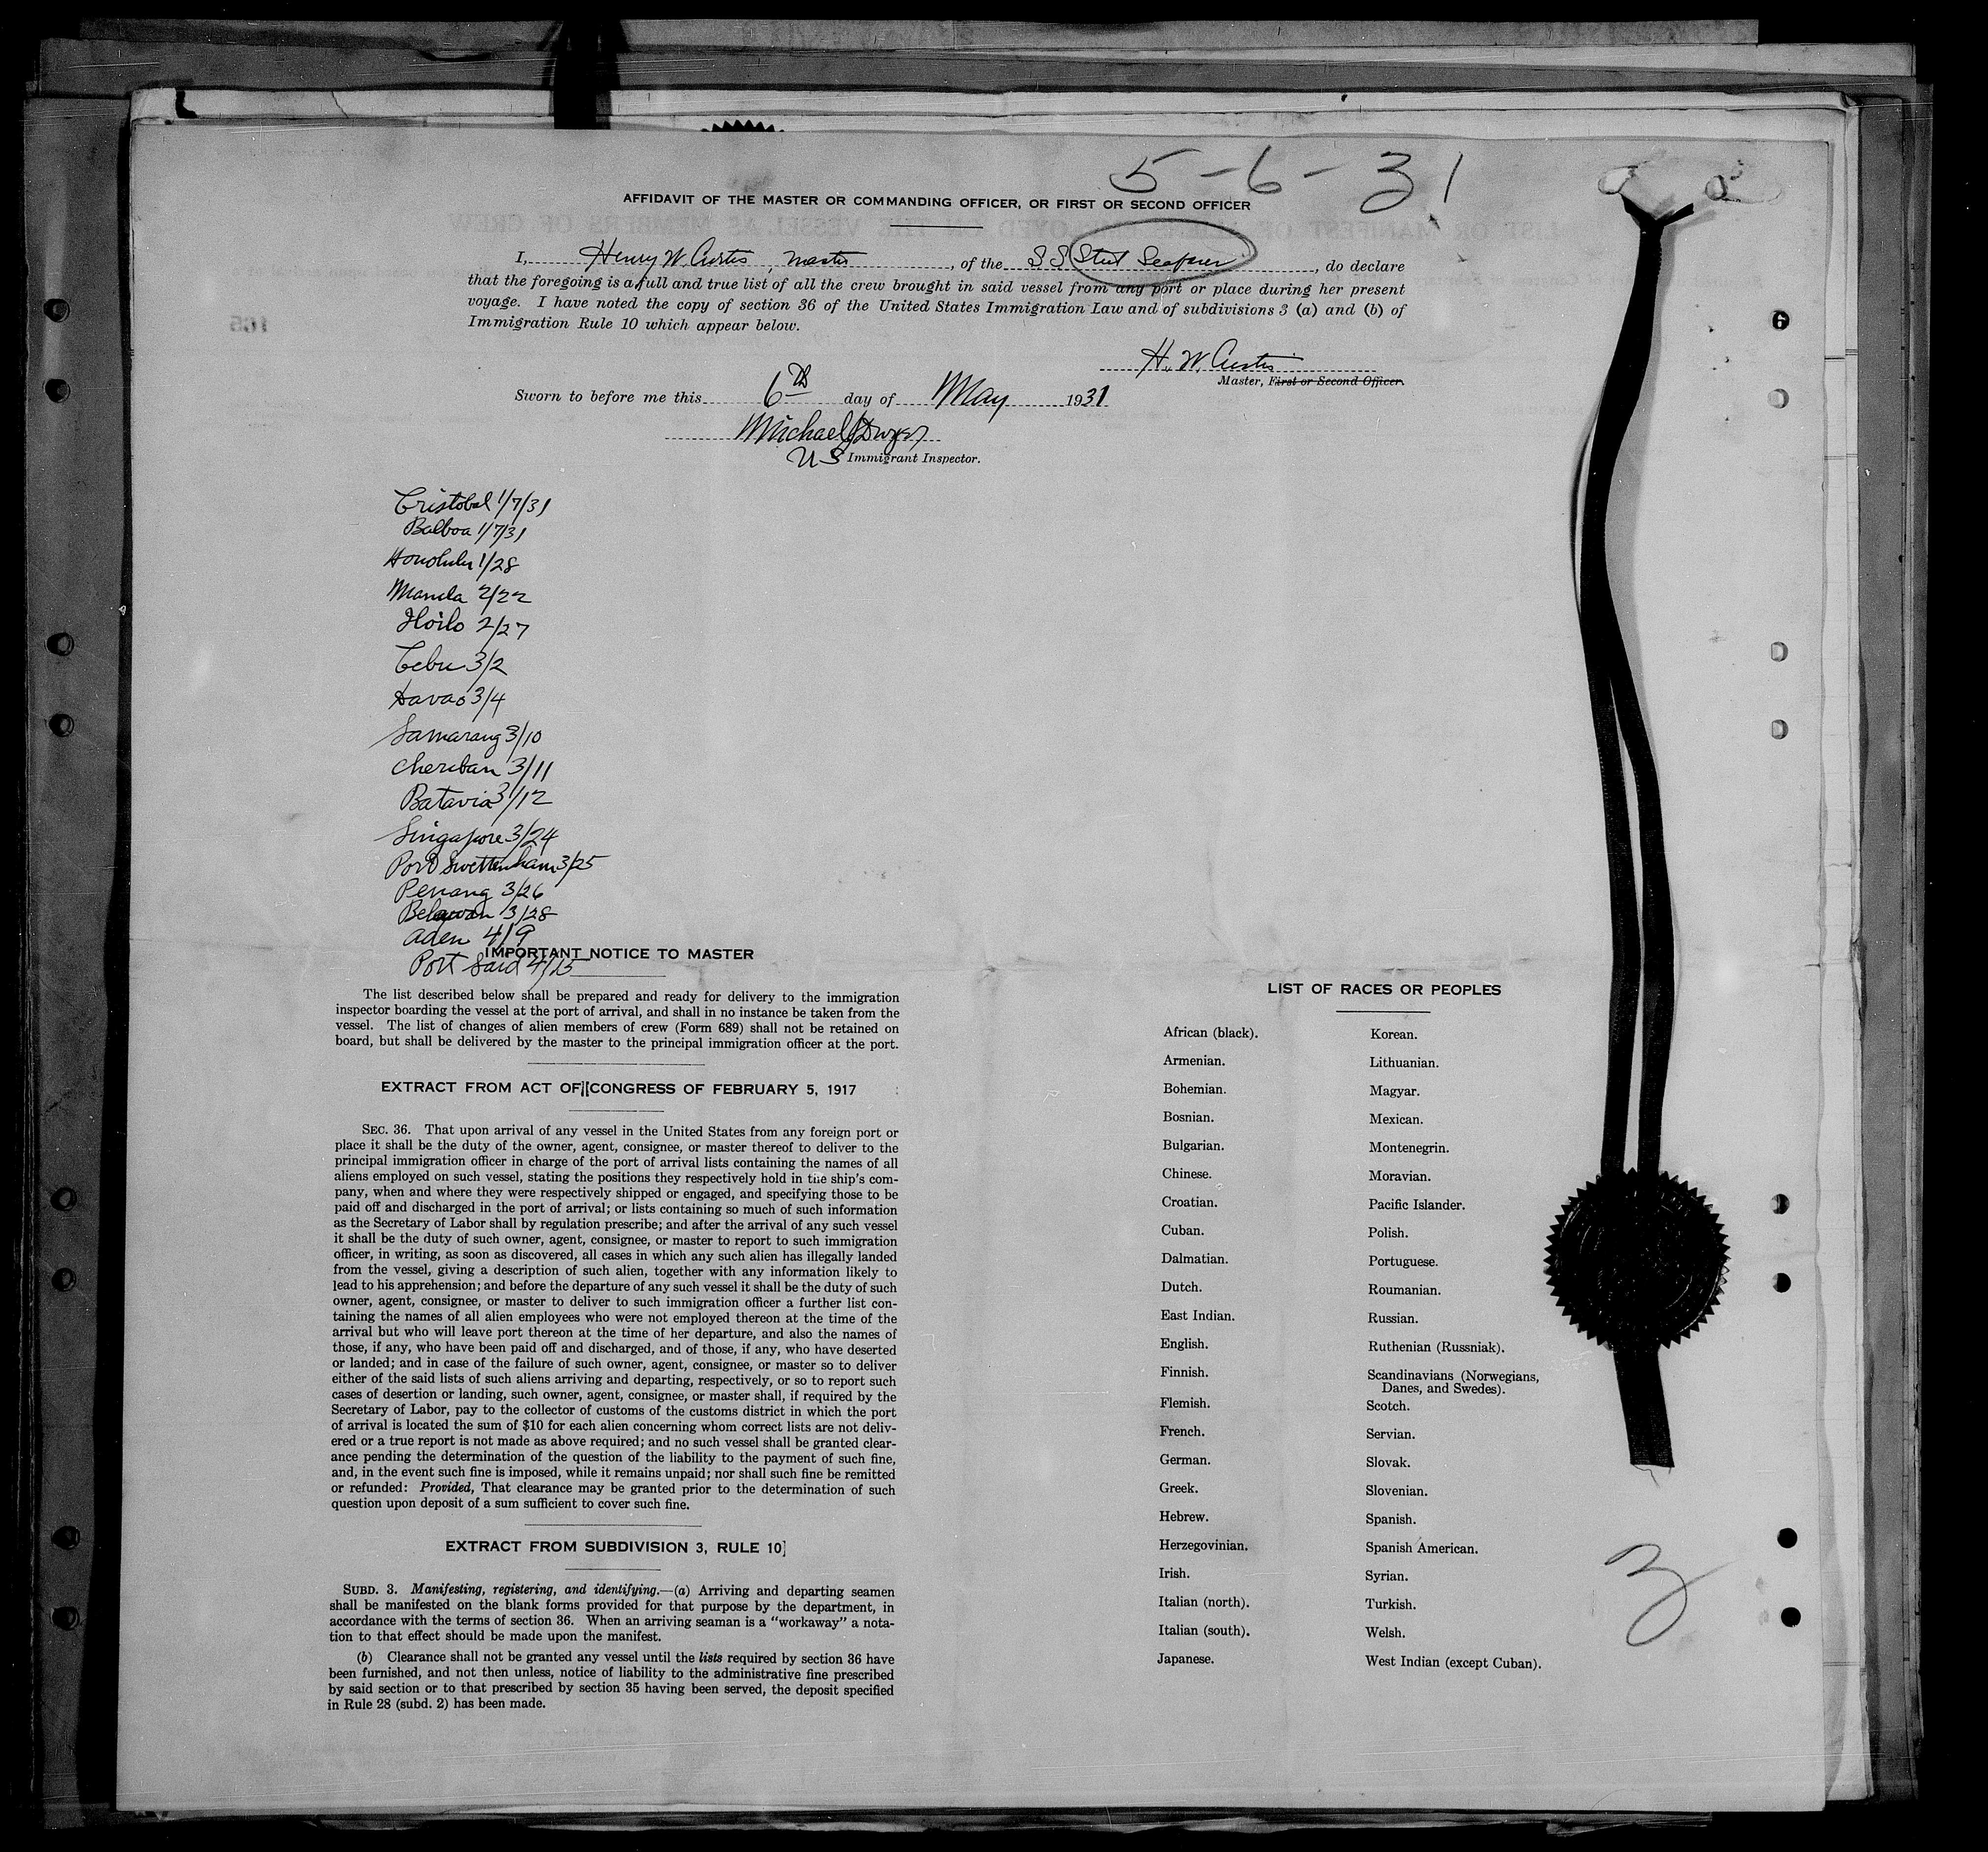 5-6-31
AFFIDAVIT OF THE MASTER OR COMMANDING OFFICER, OR FIRST OR SECOND OFFICER
I, Henry W. Curtis, master, of the SS Steel Seafarer, do declare
that the foregoing is a full and true list of all the crew brought in said vessel from any port or place during her present
voyage. I have noted the copy of section 36 of the United States Immigration Law and of subdivisions 3 (a) and (b) of
Immigration Rule 10 which appear below.
H. W. Curtis
Master, First or Second Officer.
Sworn to before me this 6th day of May 1931
Michael J Dwyer
US Immigrant Inspector.
Cristobal 1/7/31
Balboa 1/7/31
Honolulu 1/28
Manila 2/22
Iloilo 2/27
Cebu 3/2
Davao 3/4
Samarang 3/10
Cheribon 3/11
Batavia 3/12
Singapore 3/24
Port Swettenham 3/25
Penang 3/26
Belawan 3/28
Aden 4/9
Port Said 4/15
IMPORTANT NOTICE TO MASTER
The list described below shall be prepared and ready for delivery to the immigration
inspector boarding the vessel at the port of arrival, and shall in no instance be taken from the
vessel. The list of changes of alien members of crew (Form 689) shall not be retained on
board, but shall be delivered by the master to the principal immigration officer at the port.
EXTRACT FROM ACT OF CONGRESS OF FEBRUARY 5, 1917
SEC. 36. That upon arrival of any vessel in the United States from any foreign port or
place it shall be the duty of the owner, agent, consignee, or master thereof to deliver to the
principal immigration officer in charge of the port of arrival lists containing the names of all
aliens employed on such vessel, stating the positions they respectively hold in the ship's com-
pany, when and where they were respectively shipped or engaged, and specifying those to be
paid off and discharged in the port of arrival; or lists containing so much of such information
as the Secretary of Labor shall by regulation prescribe; and after the arrival of any such vessel
it shall be the duty of such owner, agent, consignee, or master to report to such immigration
officer, in writing, as soon as discovered, all cases in which any such alien has illegally landed
from the vessel, giving a description of such alien, together with any information likely to
lead to his apprehension; and before the departure of any such vessel it shall be the duty of such
owner, agent, consignee, or master to deliver to such immigration officer a further list con-
taining the names of all alien employees who were not employed thereon at the time of the
arrival but who will leave port thereon at the time of her departure, and also the names of
those, if any, who have been paid off and discharged, and of those, if any, who have deserted
or landed; and in case of the failure of such owner, agent, consignee, or master so to deliver
either of the said lists of such aliens arriving and departing, respectively, or so to report such
cases of desertion or landing, such owner, agent, consignee, or master shall, if required by the
Secretary of Labor, pay to the collector of customs of the customs district in which the port
of arrival is located the sum of $10 for each alien concerning whom correct lists are not deliv-
ered or a true report is not made as above required; and no such vessel shall be granted clear-
ance pending the determination of the question of the liability to the payment of such fine,
and, in the event such fine is imposed, while it remains unpaid; nor shall such fine be remitted
or refunded: Provided, That clearance may be granted prior to the determination of such
question upon deposit of a sum sufficient to cover such fine.
EXTRACT FROM SUBDIVISION 3, RULE 10
SUBD. 3. Manifesting, registering, and identifying.—(a) Arriving and departing seamen
shall be manifested on the blank forms provided for that purpose by the department, in
accordance with the terms of section 36. When an arriving seaman is a "workaway" a nota-
tion to that effect should be made upon the manifest.
(b) Clearance shall not be granted any vessel until the lists required by section 36 have
been furnished, and not then unless, notice of liability to the administrative fine prescribed
by said section or to that prescribed by section 35 having been served, the deposit specified
in Rule 28 (subd. 2) has been made.
LIST OF RACES OR PEOPLES
African (black).
Armenian.
Bohemian.
Bosnian.
Bulgarian.
Chinese.
Croatian.
Cuban.
Dalmatian.
Dutch.
East Indian.
English.
Finnish.
Flemish.
French.
German.
Greek.
Hebrew.
Herzegovinian.
Irish.
Italian (north).
Italian (south).
Japanese.
Korean.
Lithuanian.
Magyar.
Mexican.
Montenegrin.
Moravian.
Pacific Islander.
Polish.
Portuguese.
Roumanian.
Russian.
Ruthenian (Russniak).
Scandinavians (Norwegians,
Danes, and Swedes).
Scotch.
Servian.
Slovak.
Slovenian.
Spanish.
Spanish American.
Syrian.
Turkish.
Welsh.
West Indian (except Cuban).
3